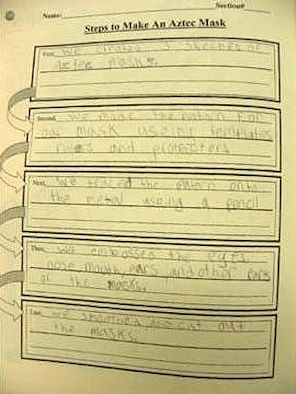 Section#
Name:
Steps to Make An Aztec Mask
First, We created 3 sketches of
aztec masks.
Second, we made the patern for
our mask useing templates
rulers and protracters
Next, We traced the patern onto
the metal using a pencil
Then, We embossed the eyes
nose, mouth, ears and other parts
of the masks.
Last, we smoothed and cut out
the masks.